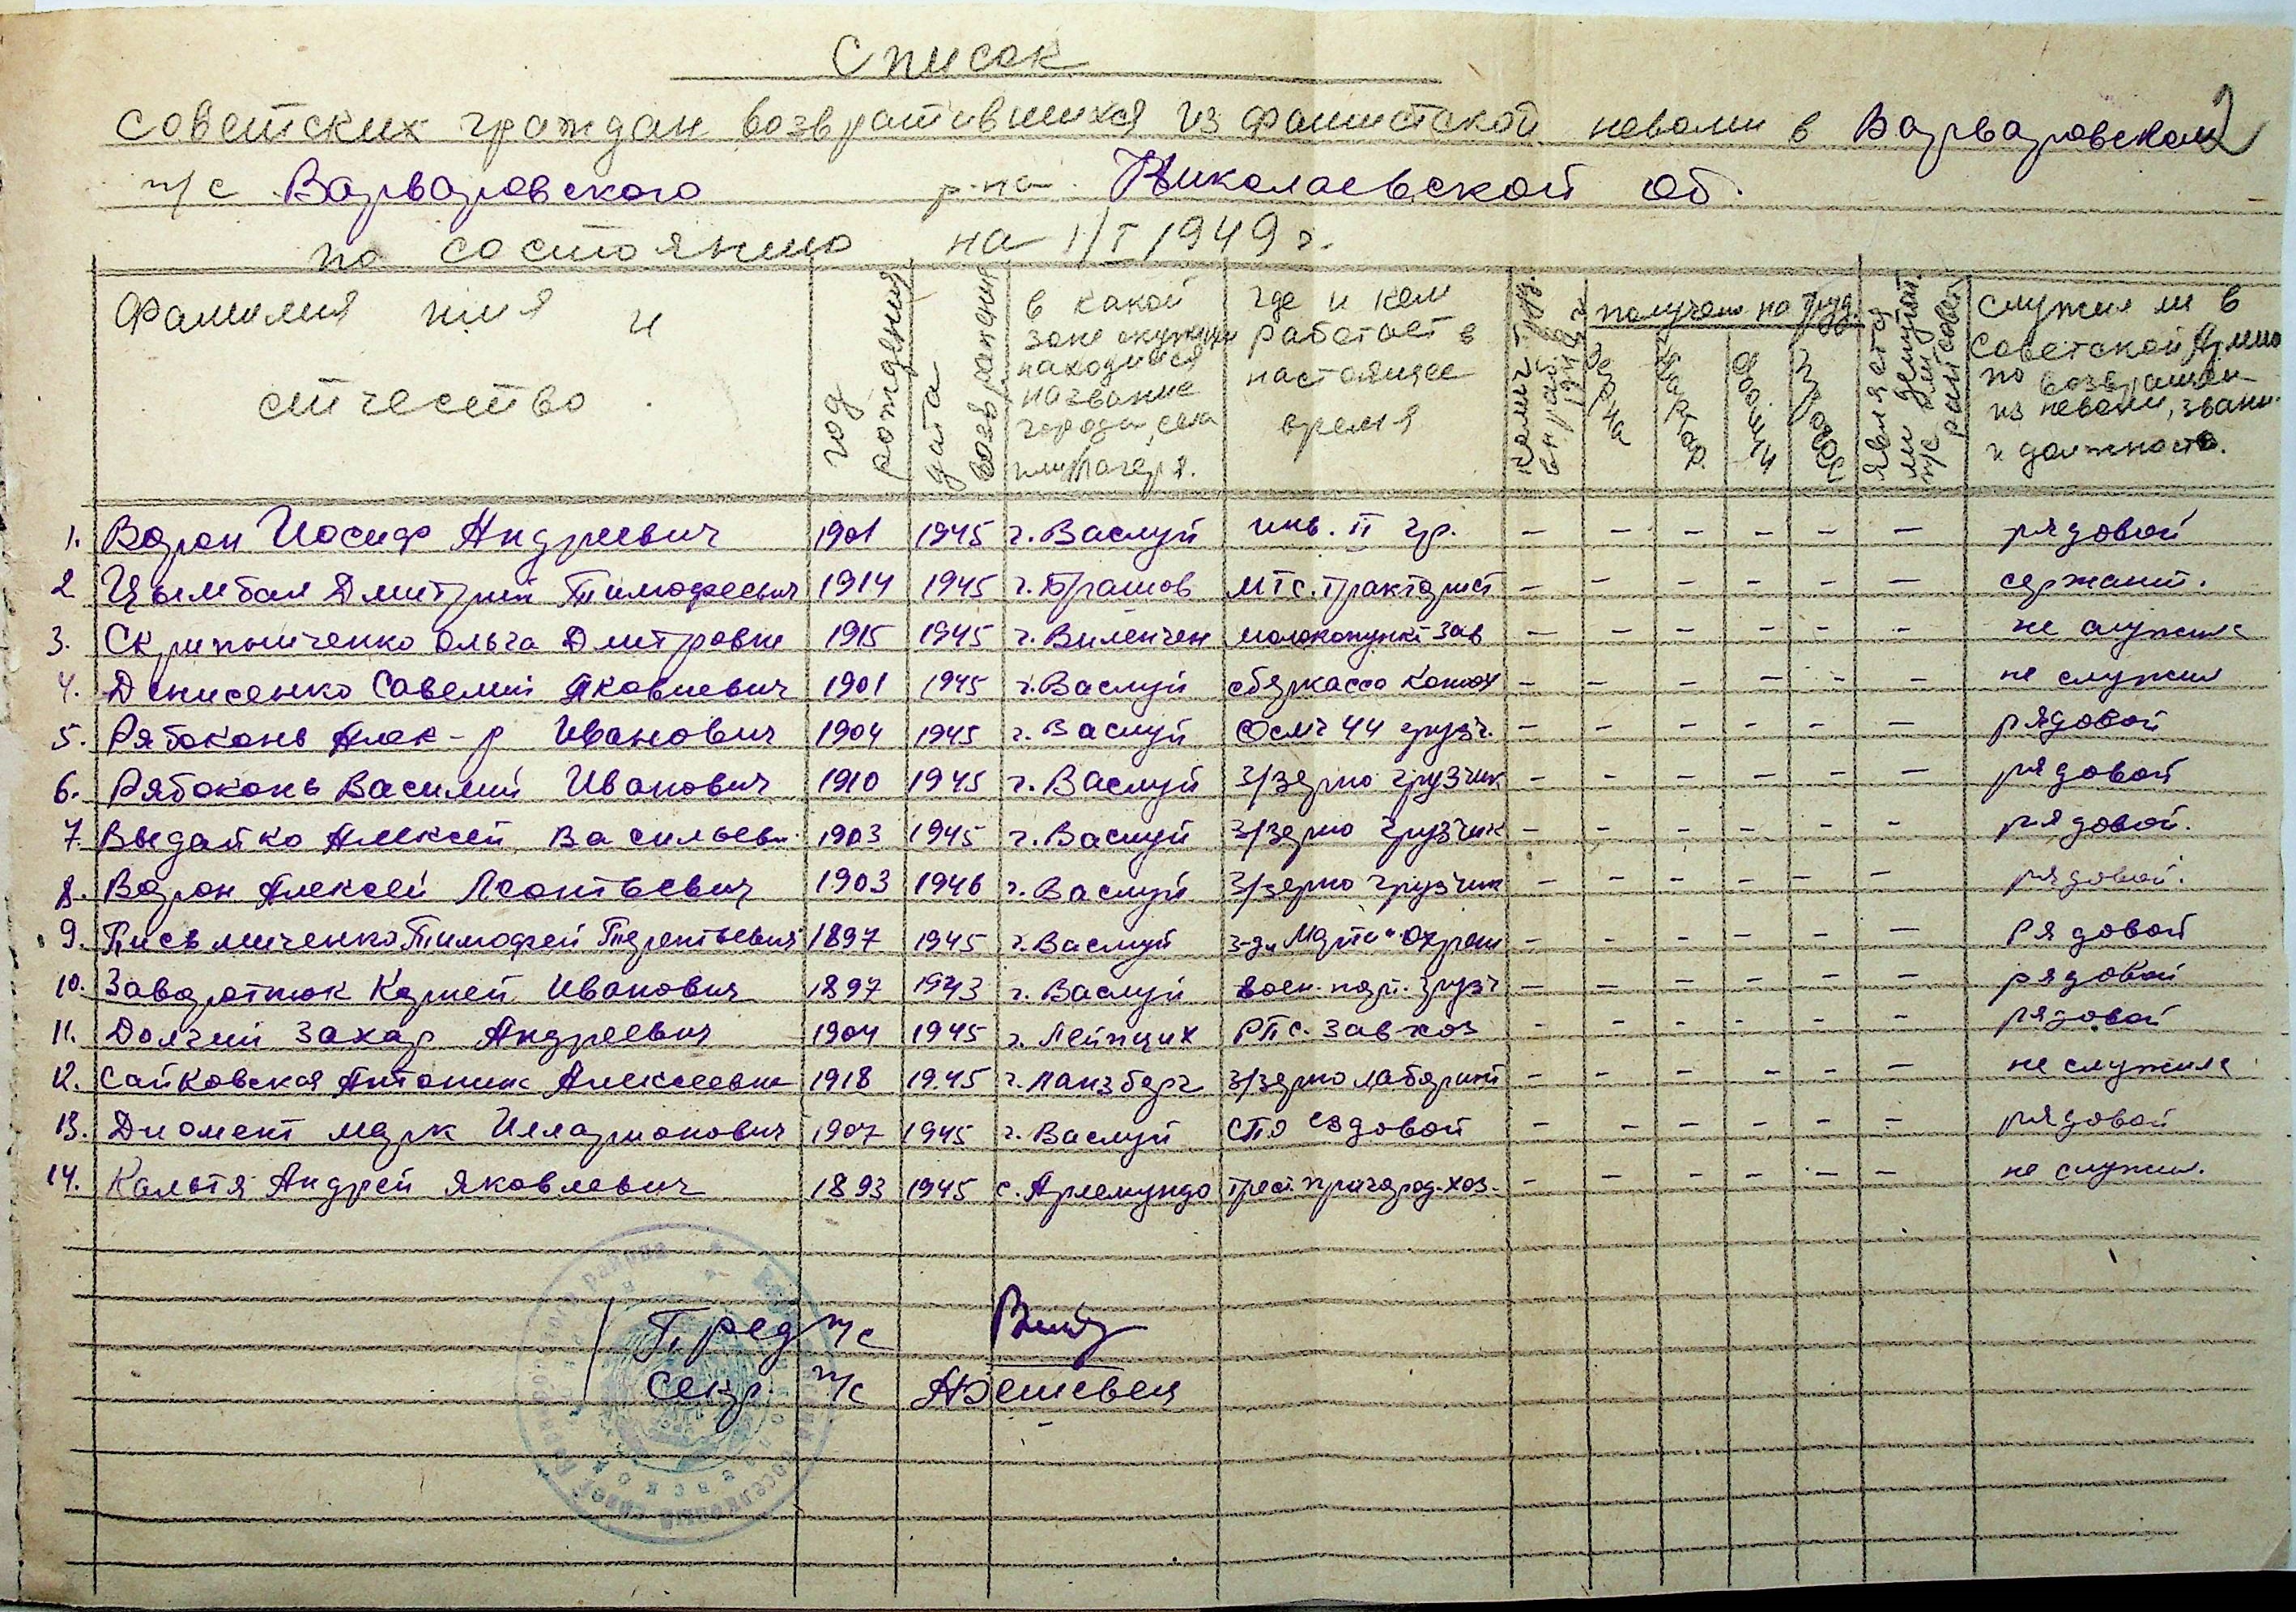 Список
2
советских граждан возвратившихся из фашистской неволи в Варваровском
п/с Варваровского р-на Николаевской об.
по состоянию на 1/I 1949 г.
Фамилия имя и отчество
год рождения
дата возвращения
в какой зоне оккупации находился название города, села или лагеря.
где и кем работает в настоящее время
получено на труд.
зерна
картоф.
овощи
является ли депутат. п/с или райсовет
служил ли в Советской Армии по возвращен из неволи, звани. и должность.
1. Варон Иосиф Андреевич 1901 1945 г. Васлуй инв. II гр. – – – – – – рядовой
2 Цымбал Дмитрий Тимофеевич 1914 1945 г. Брашов МТС. тракторист – – – – – – сержант.
3. Скрипниченко Ольга Дмитровн 1915 1945 г. молокопункт Зав – – – – – – не служила
4. Денисенко Савелий Яковлевич 1901 1945 г. Васлуй сберкасса – – – – – – не служил
5. Рябоконь Алек-р Иванович 1904 1945 г. Васлуй 44 грузч. – – – – – – рядовой
6. Рябоконь Василий Иванович 1910 1945 г. Васлуй З/зерно грузчик – – – – – – рядовой
7. Выдайко Алексей Васильеви. 1903 1945 г. Васлуй З/зерно грузчик – – – – – – рядовой.
8. Варон Алексей Леонтьевич 1903 1946 г. Васлуй З/зерно грузчик – – – – – – рядовой.
9. Письмиченко Тимофей Терентьевич 1897 1945 г. Васлуй з-д Марти охран – – – – – – Рядовой
10. Заворотнюк Корней Иванович 1897 1943 г. Васлуй воен. порт. грузч – – – – – – рядовой
11. Долгий Захар Андреевич 1904 1945 г. Лейпциг РПС. Завхоз – – – – – – рядовой
12. Сайковская Антонин Алексеевн 1918 1945 г. Ланзберг З/зерно лаборант – – – – – – не служила
13. Диомент Марк Илларионович 1907 1945 г. Васлуй СПО ездовой – – – – – – рядовой
14. Кальтя Андрей Яковлевич 1893 1945 с. трест пригород-хоз. – – – – – – не служил.
Пред п/с
Секр. п/с